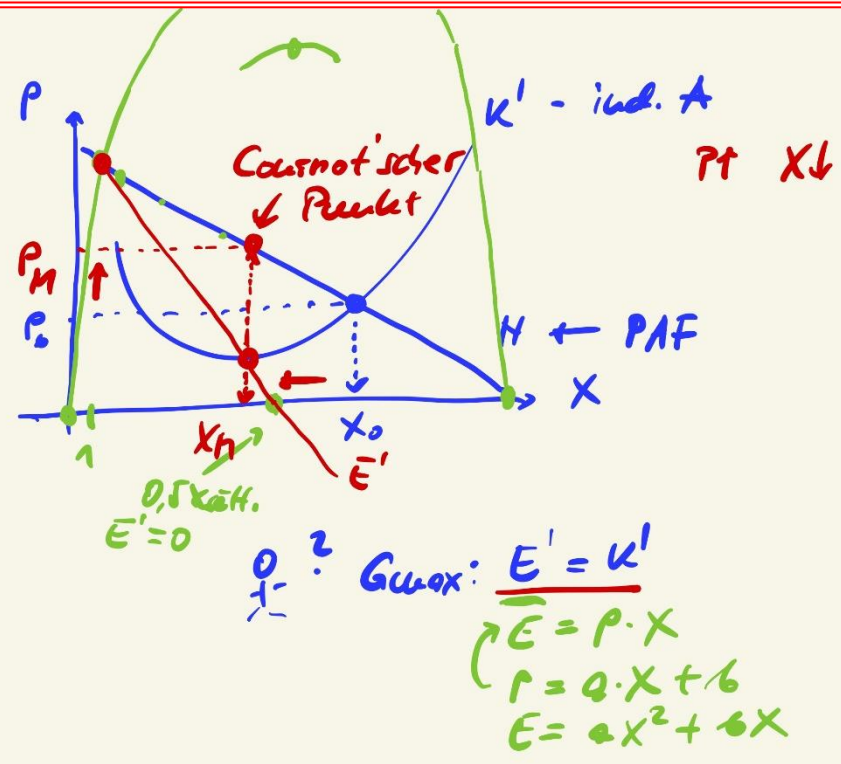 P
K' - ind. A
P↑ X↓
Cournot'scher
Punkt
P_M
P_0
N ← PAF
X
1
X_M
X_0
E'
0,5 Xsätt.
E'=0
? Gmax: E' = K'
E = P·X
P = a·X + b
E = aX² + bX